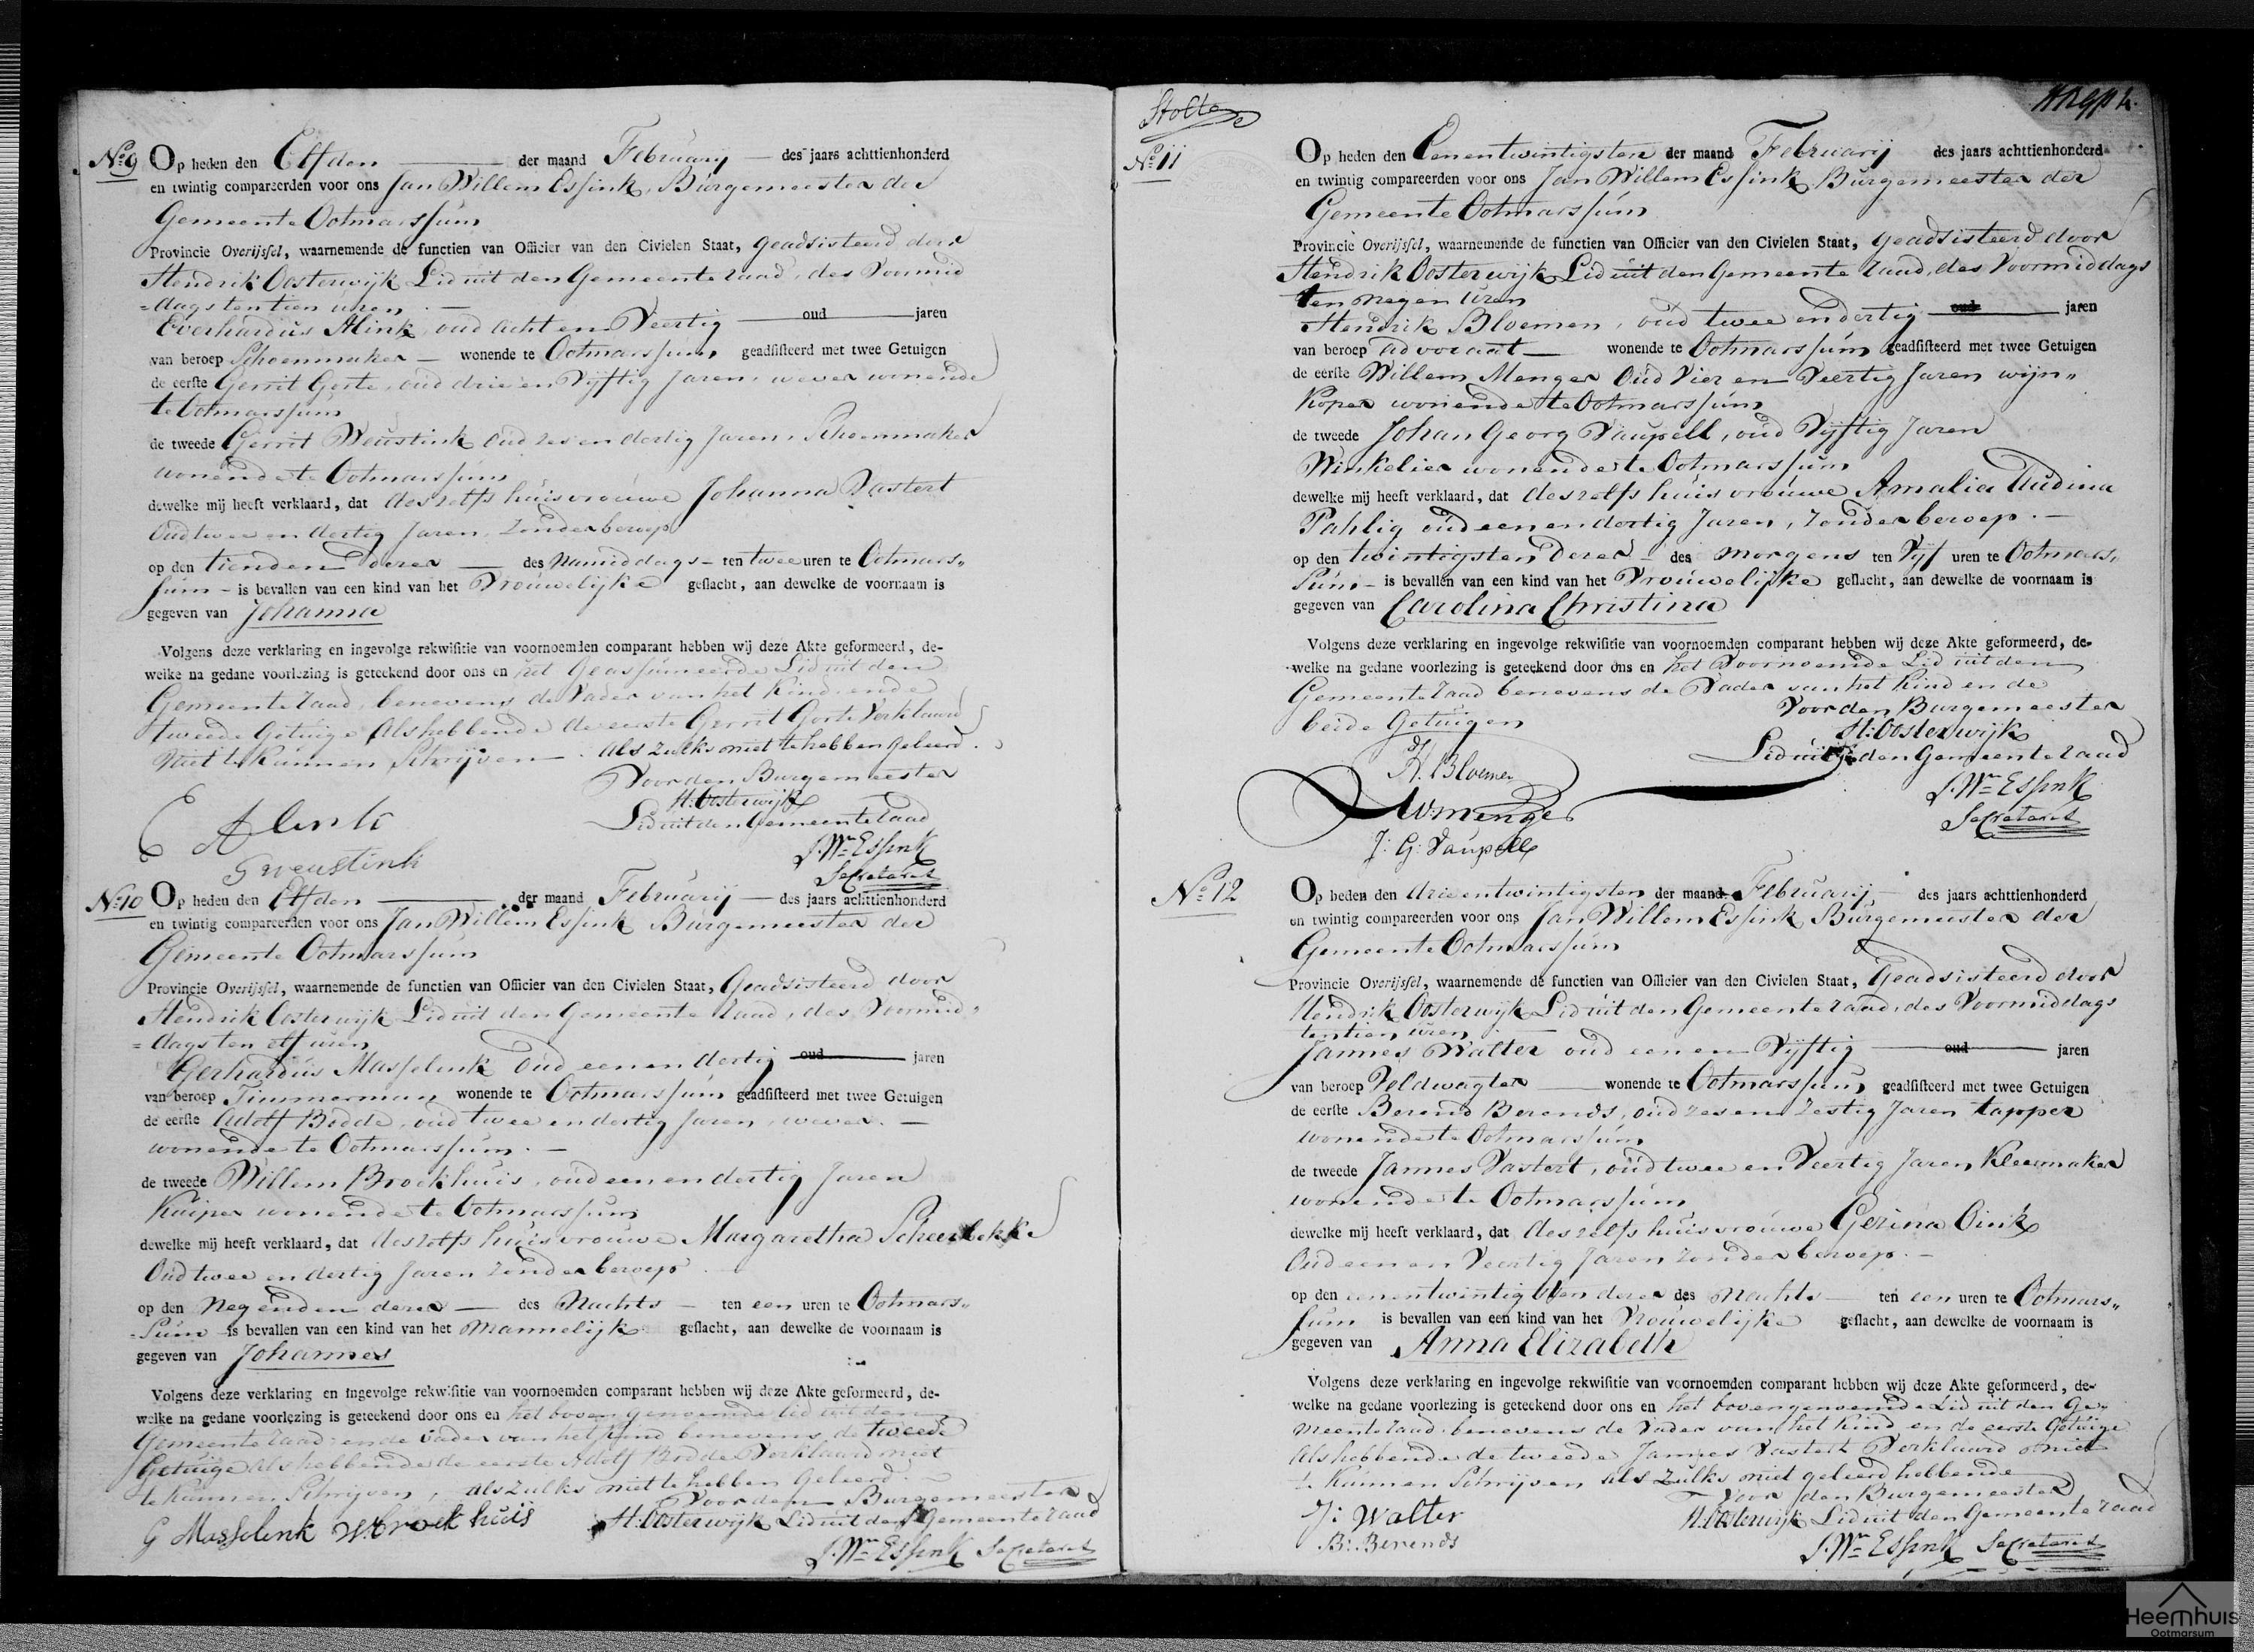 No 9 Op heden den Elfden der maand Februarij des jaars achttienhonderd
en twintig compareerden voor ons Jan Willem Essink, Burgemeester der
Gemeente Ootmarssum
Provincie Overijssel, waarnemende de functien van Officier van den Civielen Staat, geadsisteerd door
Hendrik Oosterwijk Lid uit den Gemeente raad, des Voormid
=dags ten tien uren
Everhardus Alink, oud acht en Veertig oud jaren
van beroep Schoenmaker wonende te Ootmarssum geadsisteerd met twee Getuigen
de eerste Gerrit Gerte, oud drie en Vijftig Jaren, wever wonende
te Ootmarssum
de tweede Gerrit Weustink oud zes en dertig Jaren, Schoenmaker
wonende te Ootmarssum
dewelke mij heeft verklaard, dat deszelfs huisvrouwe Johanna Vastert
Oud twee en dertig Jaren, zonder beroep
op den tienden dezer des Namiddags ten twee uren te Ootmars„
sum is bevallen van een kind van het Vrouwelijke geslacht, aan dewelke de voornaam is
gegeven van Johanna
Volgens deze verklaring en ingevolge rekwisitie van voornoemden comparant hebben wij deze Akte geformeerd, de-
welke na gedane voorlezing is geteekend door ons en het Geassumeerde Lid uit den
Gemeente raad, benevens de Vader van het Kind en de
tweede Getuige Als hebbende de eerste Gerrit Gerte Verklaard
Niet te Kunnen Schrijven Als zulks niet te hebben geleerd.
Voor den Burgemeester
H: Oosterwijk
Lid uit den Gemeente raad
E Alink
G weustink
J. Wm Essink
Secretaris
No 10 Op heden den Elfden der maand Februarij des jaars achttienhonderd
en twintig compareerden voor ons Jan Willem Essink Burgemeester der
Gemeente Ootmarssum
Provincie Overijssel, waarnemende de functien van Officier van den Civielen Staat, Geadsisteerd door
Hendrik Oosterwijk Lid uit den Gemeente raad, des Voormid„
=dags ten elf uren
Gerhardus Masselink Oud een en dertig oud jaren
van beroep Timmerman wonende te Ootmarssum geadsisteerd met twee Getuigen
de eerste Adolf Bodde, oud twee en dertig Jaren, wever
wonende te Ootmarssum
de tweede Willem Broekhuis, oud een en dertig Jaren
Kuiper wonende te Ootmarssum
dewelke mij heeft verklaard, dat deszelfs huisvrouwe Margaretha
Oud twee en dertig Jaren zonder beroep
op den Negenden dezer des Nachts ten een uren te Ootmars„
sum is bevallen van een kind van het Mannelijk geslacht, aan dewelke de voornaam is
gegeven van Johannes
Volgens deze verklaring en ingevolge rekwisitie van voornoemden comparant hebben wij deze Akte geformeerd, de-
welke na gedane voorlezing is geteekend door ons en het boven genoemde lid uit den
Gemeente raad en de vader van het kind benevens de tweede
Getuige als hebbende de eerste Adolf Bodde Verklaard niet
te kunnen Schrijven, als zulks niet te hebben geleerd.
Voor den Burgemeester
G Masselink W broekhuis H: Oosterwijk Lid uit den Gemeente raad
J. Wm Essink Secretaris
Stolte
No 11 Op heden den Eenentwintigsten der maand Februarij des jaars achttienhonderd
en twintig compareerden voor ons Jan Willem Essink Burgemeester der
Gemeente Ootmarssum
Provincie Overijssel, waarnemende de functien van Officier van den Civielen Staat, geadsisteerd door
Hendrik Oosterwijk Lid uit den Gemeente raad, des Voormiddags
ten negen uren
Hendrik Bloemen, oud twee en dertig oud jaren
van beroep advocaat wonende te Ootmarssum geadsisteerd met twee Getuigen
de eerste Willem Menger Oud Vier en Veertig Jaren wijn„
Koper wonende te Ootmarssum
de tweede Johan Georg Vaupell, oud Vijftig Jaren
Winkelier wonende te Ootmarssum
dewelke mij heeft verklaard, dat deszelfs huisvrouwe Amalia Audina
Pahlig oud een en dertig Jaren, zonder beroep
op den twintigsten dezer des morgens ten Vijf uren te Ootmars„
sum is bevallen van een kind van het Vrouwelijke geslacht, aan dewelke de voornaam is
gegeven van Carolina Christina
Volgens deze verklaring en ingevolge rekwisitie van voornoemden comparant hebben wij deze Akte geformeerd, de-
welke na gedane voorlezing is geteekend door ons en het Voornoemde Lid uit den
Gemeente raad benevens de Vader van het Kind en de
beide Getuigen
Voor den Burgemeester
H: Oosterwijk
Lid uit den Gemeente raad
H. Bloemen
W: menger
J: G: Vaupell
J. Wm Essink
Secretaris
No 12 Op heden den drieentwintigsten der maand Februarij des jaars achttienhonderd
en twintig compareerden voor ons Jan Willem Essink Burgemeester der
Gemeente Ootmarssum
Provincie Overijssel, waarnemende de functien van Officier van den Civielen Staat, Geadsisteerd door
Hendrik Oosterwijk Lid uit den Gemeente raad, des Voormiddags
ten tien uren
Jannes Walter oud een en Vijftig oud jaren
van beroep Veldwagter wonende te Ootmarssum geadsisteerd met twee Getuigen
de eerste Berend Berends, oud zes en zestig Jaren tapper
wonende te Ootmarssum
de tweede Jannes Vastert, oud twee en Veertig Jaren Kleermaker
wonende te Ootmarssum
dewelke mij heeft verklaard, dat deszelfs huisvrouwe Gezina Oink
Oud een en Veertig Jaren zonder beroep
op den eenentwintigsten dezer des Nachts ten een uren te Ootmars„
sum is bevallen van een kind van het Vrouwelijke geslacht, aan dewelke de voornaam is
gegeven van Anna Elizabeth
Volgens deze verklaring en ingevolge rekwisitie van voornoemden comparant hebben wij deze Akte geformeerd, de-
welke na gedane voorlezing is geteekend door ons en het bovengenoemde Lid uit den Ge„
meente raad, benevens de Vader van het Kind en de eerste Getuige
Als hebbende de tweede Jannes Vastert Verklaard niet
te Kunnen Schrijven als zulks niet geleerd hebbende
Voor den Burgemeester
J: Walter H. Oosterwijk Lid uit den Gemeente raad
B: Berends J. Wm Essink Secretaris
Heemhuis
Ootmarsum